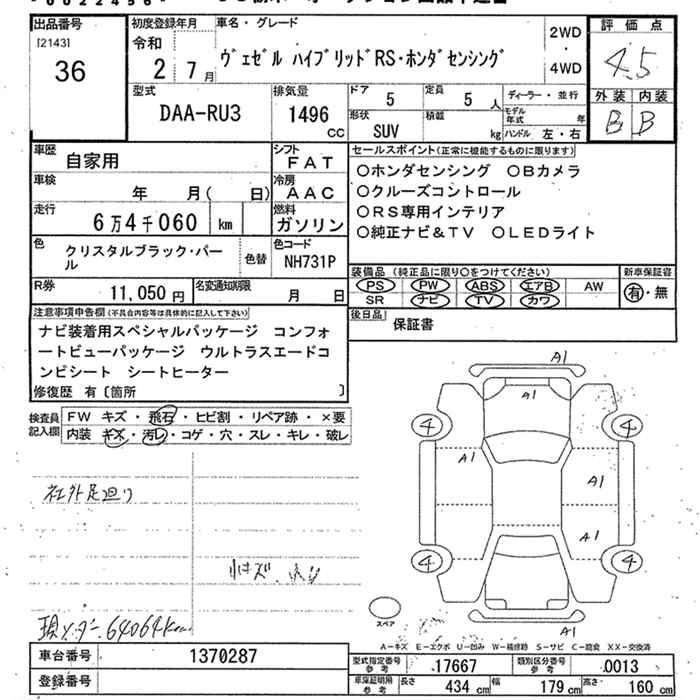 出品番号
[2143]
36
初度登録年月
令和
2年 7月
車名・グレード
ヴェゼル ハイブリッドRS・ホンダセンシング
2WD
・
4WD
評価点
4.5
外装 内装
B B
型式
DAA-RU3
排気量
1496
CC
ドア
5
定員
5 人
形状
SUV
積載
kg
ディーラー・並行
モデル年式 年
ハンドル 左・右
車歴
自家用
車検
年 月( 日)
走行
6万4千060 km
色
クリスタルブラック・パール
色替
シフト
FAT
冷房
AAC
燃料
ガソリン
色コード
NH731P
R券
11,050円
名変通知期限
月 日
セールスポイント(正常に機能するものに限ります)
○ホンダセンシング ○Bカメラ
○クルーズコントロール
○RS専用インテリア
○純正ナビ&TV ○LEDライト
装備品 (純正品に限り○をつけてください)
PS PW ABS エアB AW
SR ナビ TV カワ
新車保証書
有・無
後日品
保証書
注意事項申告欄(不具合内容等は具体的に記入して下さい)
ナビ装着用スペシャルパッケージ コンフォ
ートビューパッケージ ウルトラスエードコ
ンビシート シートヒーター
修復歴 有〔箇所 〕
検査員
記入欄
FW キズ・飛石・ヒビ割・リペア跡・×要
内装 キズ・汚レ・コゲ・穴・スレ・キレ・破レ
社外足廻り
現メーター 64064km
A1
A1
4
4
A1
A1
A1
4
4
A1
スペア
A-キズ E-エクボ U-凹み W-補修跡 S-サビ C-腐食 XX-交換済
車台番号
1370287
登録番号
型式指定番号
参考
17667
類別区分番号
参考
0013
車庫証明用
参考
長さ
434 cm
幅
179 cm
高さ
160 cm